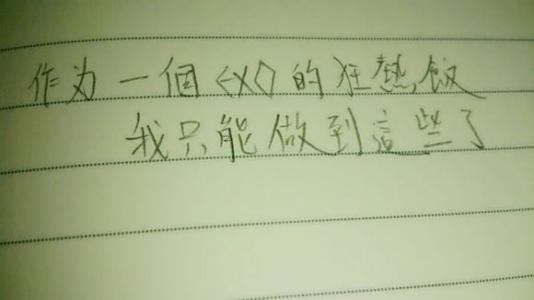 作为一個EXO的狂熱飯
我只能做到這些了